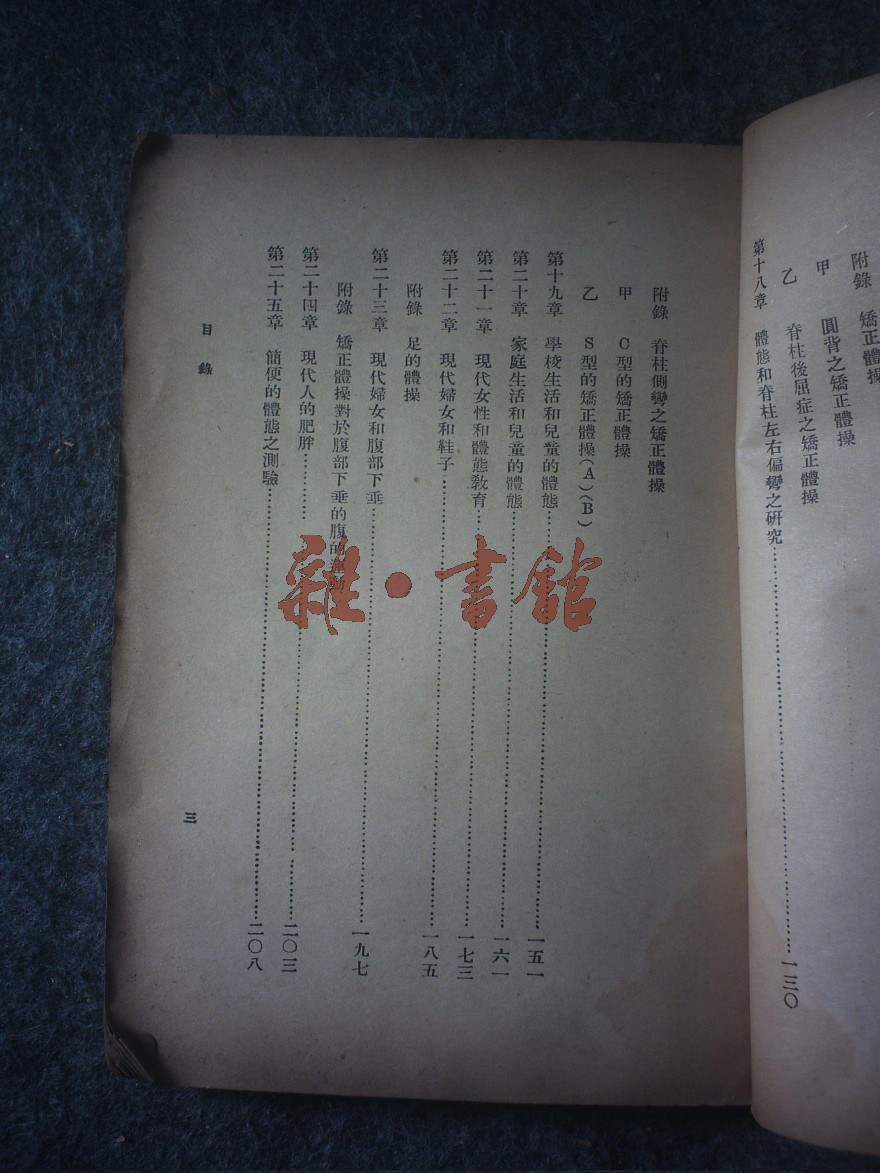 附錄 矯正體操
甲 圓背之矯正體操
乙 脊柱後屈症之矯正體操
第十八章 體態和脊柱左右偏彎之研究……一三〇
附錄 脊柱側彎之矯正體操
甲 C型的矯正體操
乙 S型的矯正體操(A)(B)
第十九章 學校生活和兒童的體態……一五一
第二十章 家庭生活和兒童的體態……一六一
第二十一章 現代女性和體態教育……一七三
第二十二章 現代婦女和鞋子……一八五
附錄 足的體操
第二十三章 現代婦女和腹部下垂……一九七
附錄 矯正體操對於腹部下垂的腹的運動
第二十四章 現代人的肥胖……二〇三
第二十五章 簡便的體態之測驗……二〇八
目錄
三
雜·書館